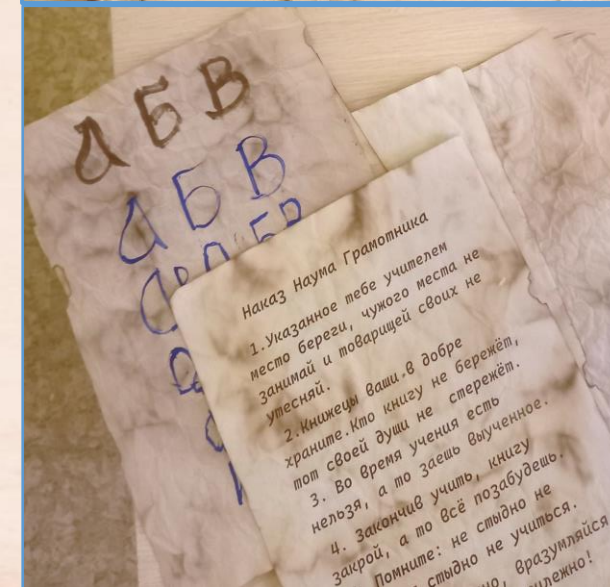 А Б В
А Б В
Наказ Наума Грамотника
1.Указанное тебе учителем
место береги, чужого места не
занимай и товарищей своих не
утесняй.
2.Книжецы ваши в добре
храните.Кто книгу не бережёт,
тот своей души не стережёт.
3. Во время учения есть
нельзя, а то заешь выученное.
4. Закончив учить, книгу
закрой, а то всё позабудешь.
Помните: не стыдно не
стыдно не учиться.
но, вразумляйся
лежно!